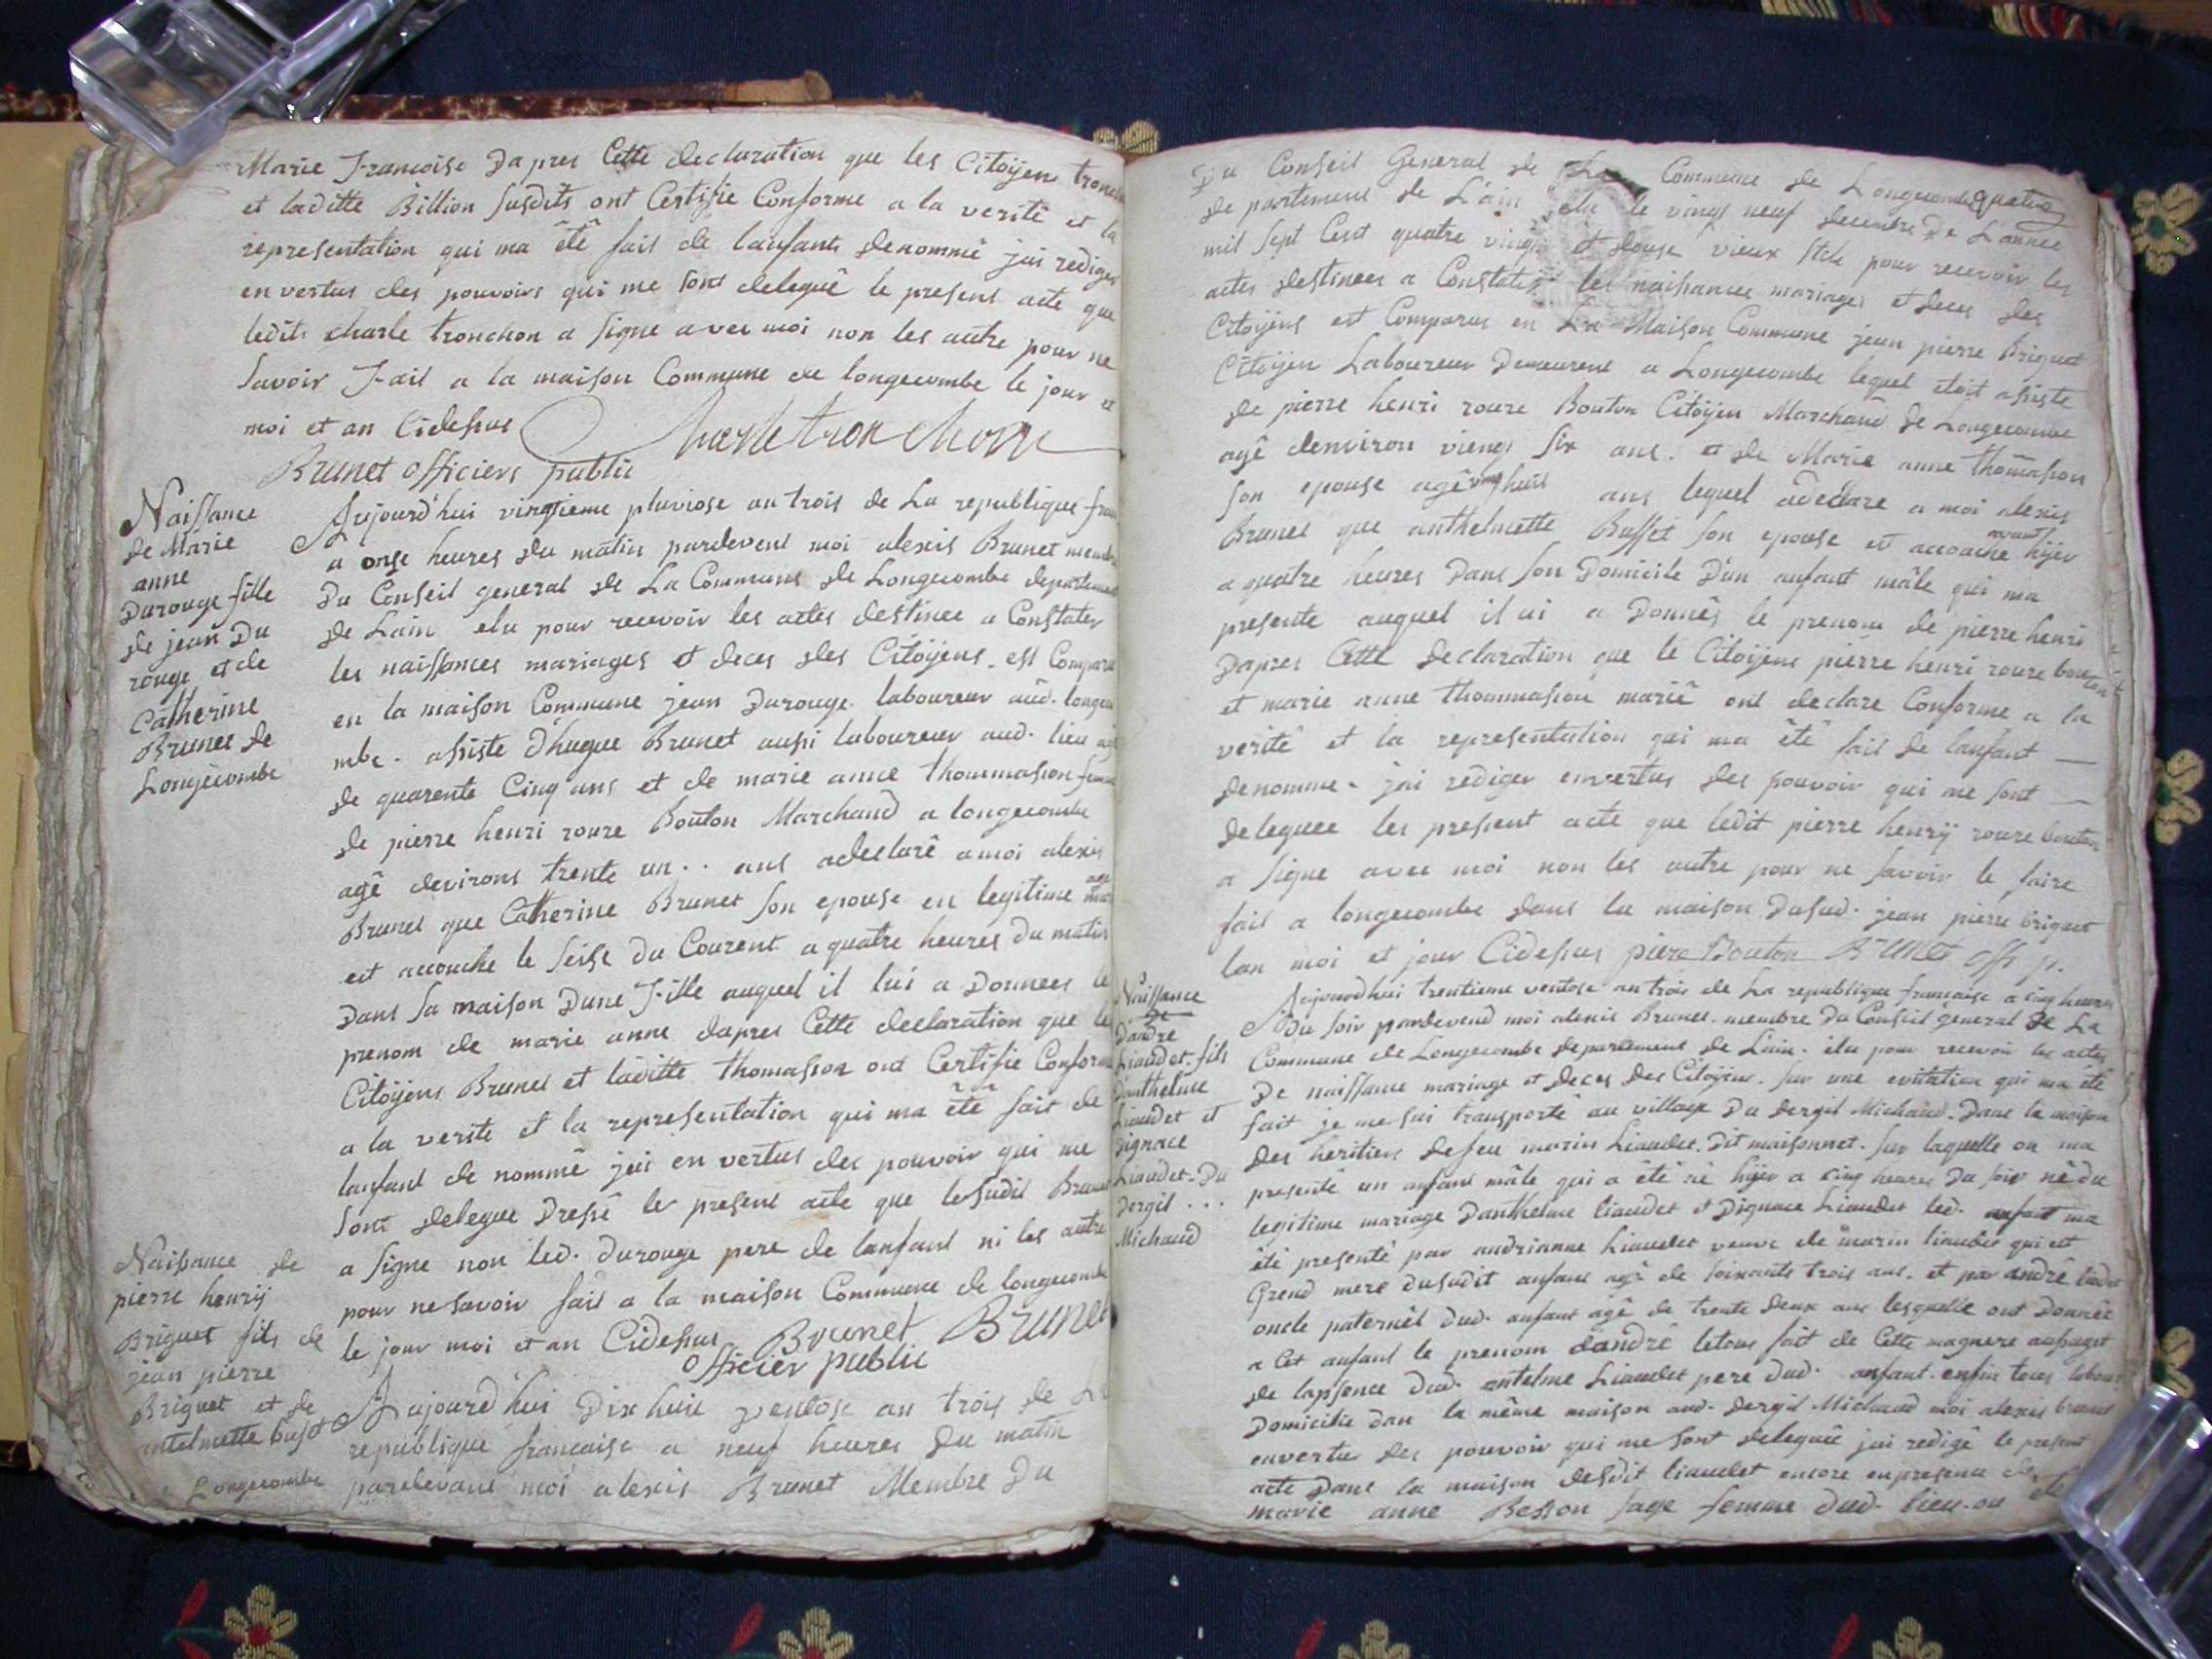 Marie Francoise Dapres Cette declaration que les Citoijens
et laditte Billion susdits ont Certifie Conforme a la verité et la
representation qui ma êtê fais de lanfants denommê jai rediger
en vertus des pouvoirs qui me sont deleguê le presens acte que
ledits charle tronchon a signe avec moi non les autre pour ne
savoir Fait a la maison Commune de longecombe le jour et
moi et an Cidessus Charle tronchon
Brunet officiers public
Naissance
de Marie
anne
Durouge fille
de jean Du
rouge et de
Catherine
Brunet de
Longecombe
Aujourd'hui vingtieme pluviose an trois de La republique
a onse heures du matin pardevent moi alexis Brunet
Du Conseil general de La Commune de Longecombe
de Lain elu pour recevoir les actes destinee a Constater
les naissances mariages et deces des Citoijens. est
en la maison Commune jean Durouge laboureur aud.
mbe. assiste d'hugue Brunet aussi laboureur aud. lieu
de quarente Cinq ans et de marie anne thommasson
de pierre henri roure Bouton Marchand a longecombe
agê devirons trente un .. ans adeclarê a moi alexis
Brunet que Catherine Brunet son epouse en legitime
est accouche le seise du Courent a quatre heures du matin
Dans sa maison Dune Fille auquel il lui a Donnees le
prenom de marie anne dapres Cette declaration que le
Citoijens Brunet et laditte thomasson ont Certifie
a la verite et la representation qui ma êtê fait de
lanfant de nommê jai en vertus des pouvoir qui me
sont delegue Dressê le present acte que lesudit
a signe non led. durouge pere de lanfant ni les autre
pour ne savoir fait a la maison Commune de longecombe
le jour moi et an Cidessus Brunet Brunet
officier public
Naissance de
pierre henrij
Briguet fils de
jean pierre
Briguet et de
antelmette
Longecombe
Aujourd'hui Dix huit ventose an trois de
republique francaise a neuf heures Du matin
pardevant moi alexis Brunet Membre Du
Du Conseil General de La Commune de Longecombe
de partement de L'ain elu le vingt neuf decembre De L'annee
mil sept Cent quatre vingt et douse vieux stile pour recevoir les
actes destinees a Constater les naissances mariages et deces des
Citoijens est Comparus en La Maison Commune jean pierre Briguet
Citoijen Laboureur Demeurent a Longecombe lequel etoit assiste
de pierre henri roure Bouton Citoijen Marchand de Longecombe
agê denviron vieng six ans. et de Marie anne thomasson
son epouse agê vingt huit ans lequel adeclare a moi alexis
Brunet que anthelmette Busset son epouse est accouche avant hijer
a quatre heures Dans son Domicile D'un anfant mâle qui ma
presente auquel il ui a Donnês le prenom de pierre henri
Dapres Cette declaration que le Citoijens pierre henri roure bouton
et marie anne thommasson mariê ont declare Conforme a la
veritê et la representation qui ma êtê fait de lanfant
denomme. jai rediger envertus des pouvoir qui me sont
deleguee les present acte que ledit pierre henrij roure bouton
a signe avec moi non les autre pour ne savoir le faire
fait a longecombe dans la maison Dusud. jean pierre briguet
lan moi et jour Cidessus piere Bouton Brunet off p.
Naissance
De
D'andre
Liaudet fils
Danthelme
Liaudet et
Dignace
Liaudet. Du
Dergit ...
Michaud
Aujourdhui trentieme ventose an trois de La republique francaise a cinq heures
Du soir pardevend moi alexis Brunet. membre Du Conseil general De La
Commune de Longecombe departement de L'ain. elu pour recevoir les actes
De naissance mariage et deces Des Citoijens. sur une evitation qui ma été
fait je me sui transportê au village Du dergit Michaud. Dans la maison
Des heritiers defeu marin Liaudet. Dit maisonnet. sur laquelle on ma
presentê un anfant mâle qui a êtê nê hijer a cinq heures Du soir nê du
legitime mariage Danthelme liaudet et Dignace Liaudet led. anfant ma
êtê presentê par andrianne Liaudet veuve de marin liaudet qui est
Grend mere Dusudit anfant agê de soixante trois ans. et par andrê
oncle paternêl Dud. anfant agê de trente deux ans lesquelle ont Donnêe
a Cet anfant le prenom dandrê letous fait de Cette magnere
de lapsence Dud. antelme Liaudet pere Dud. anfant. enfin tous
Domicilie dan la même maison aud. dergit Michaud moi alexis brunet
envertus des pouvoir qui me sont deleguêe jai redigê le present
acte Dans la maison desdit liaudet encore enpresence de
marie anne Besson sage femme dud. lieu. ou